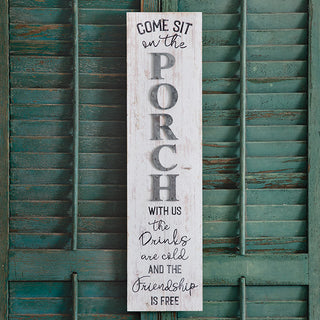 COME SIT
on the
PORCH
WITH US
the
Drinks
are cold
AND THE
Friendship
IS FREE